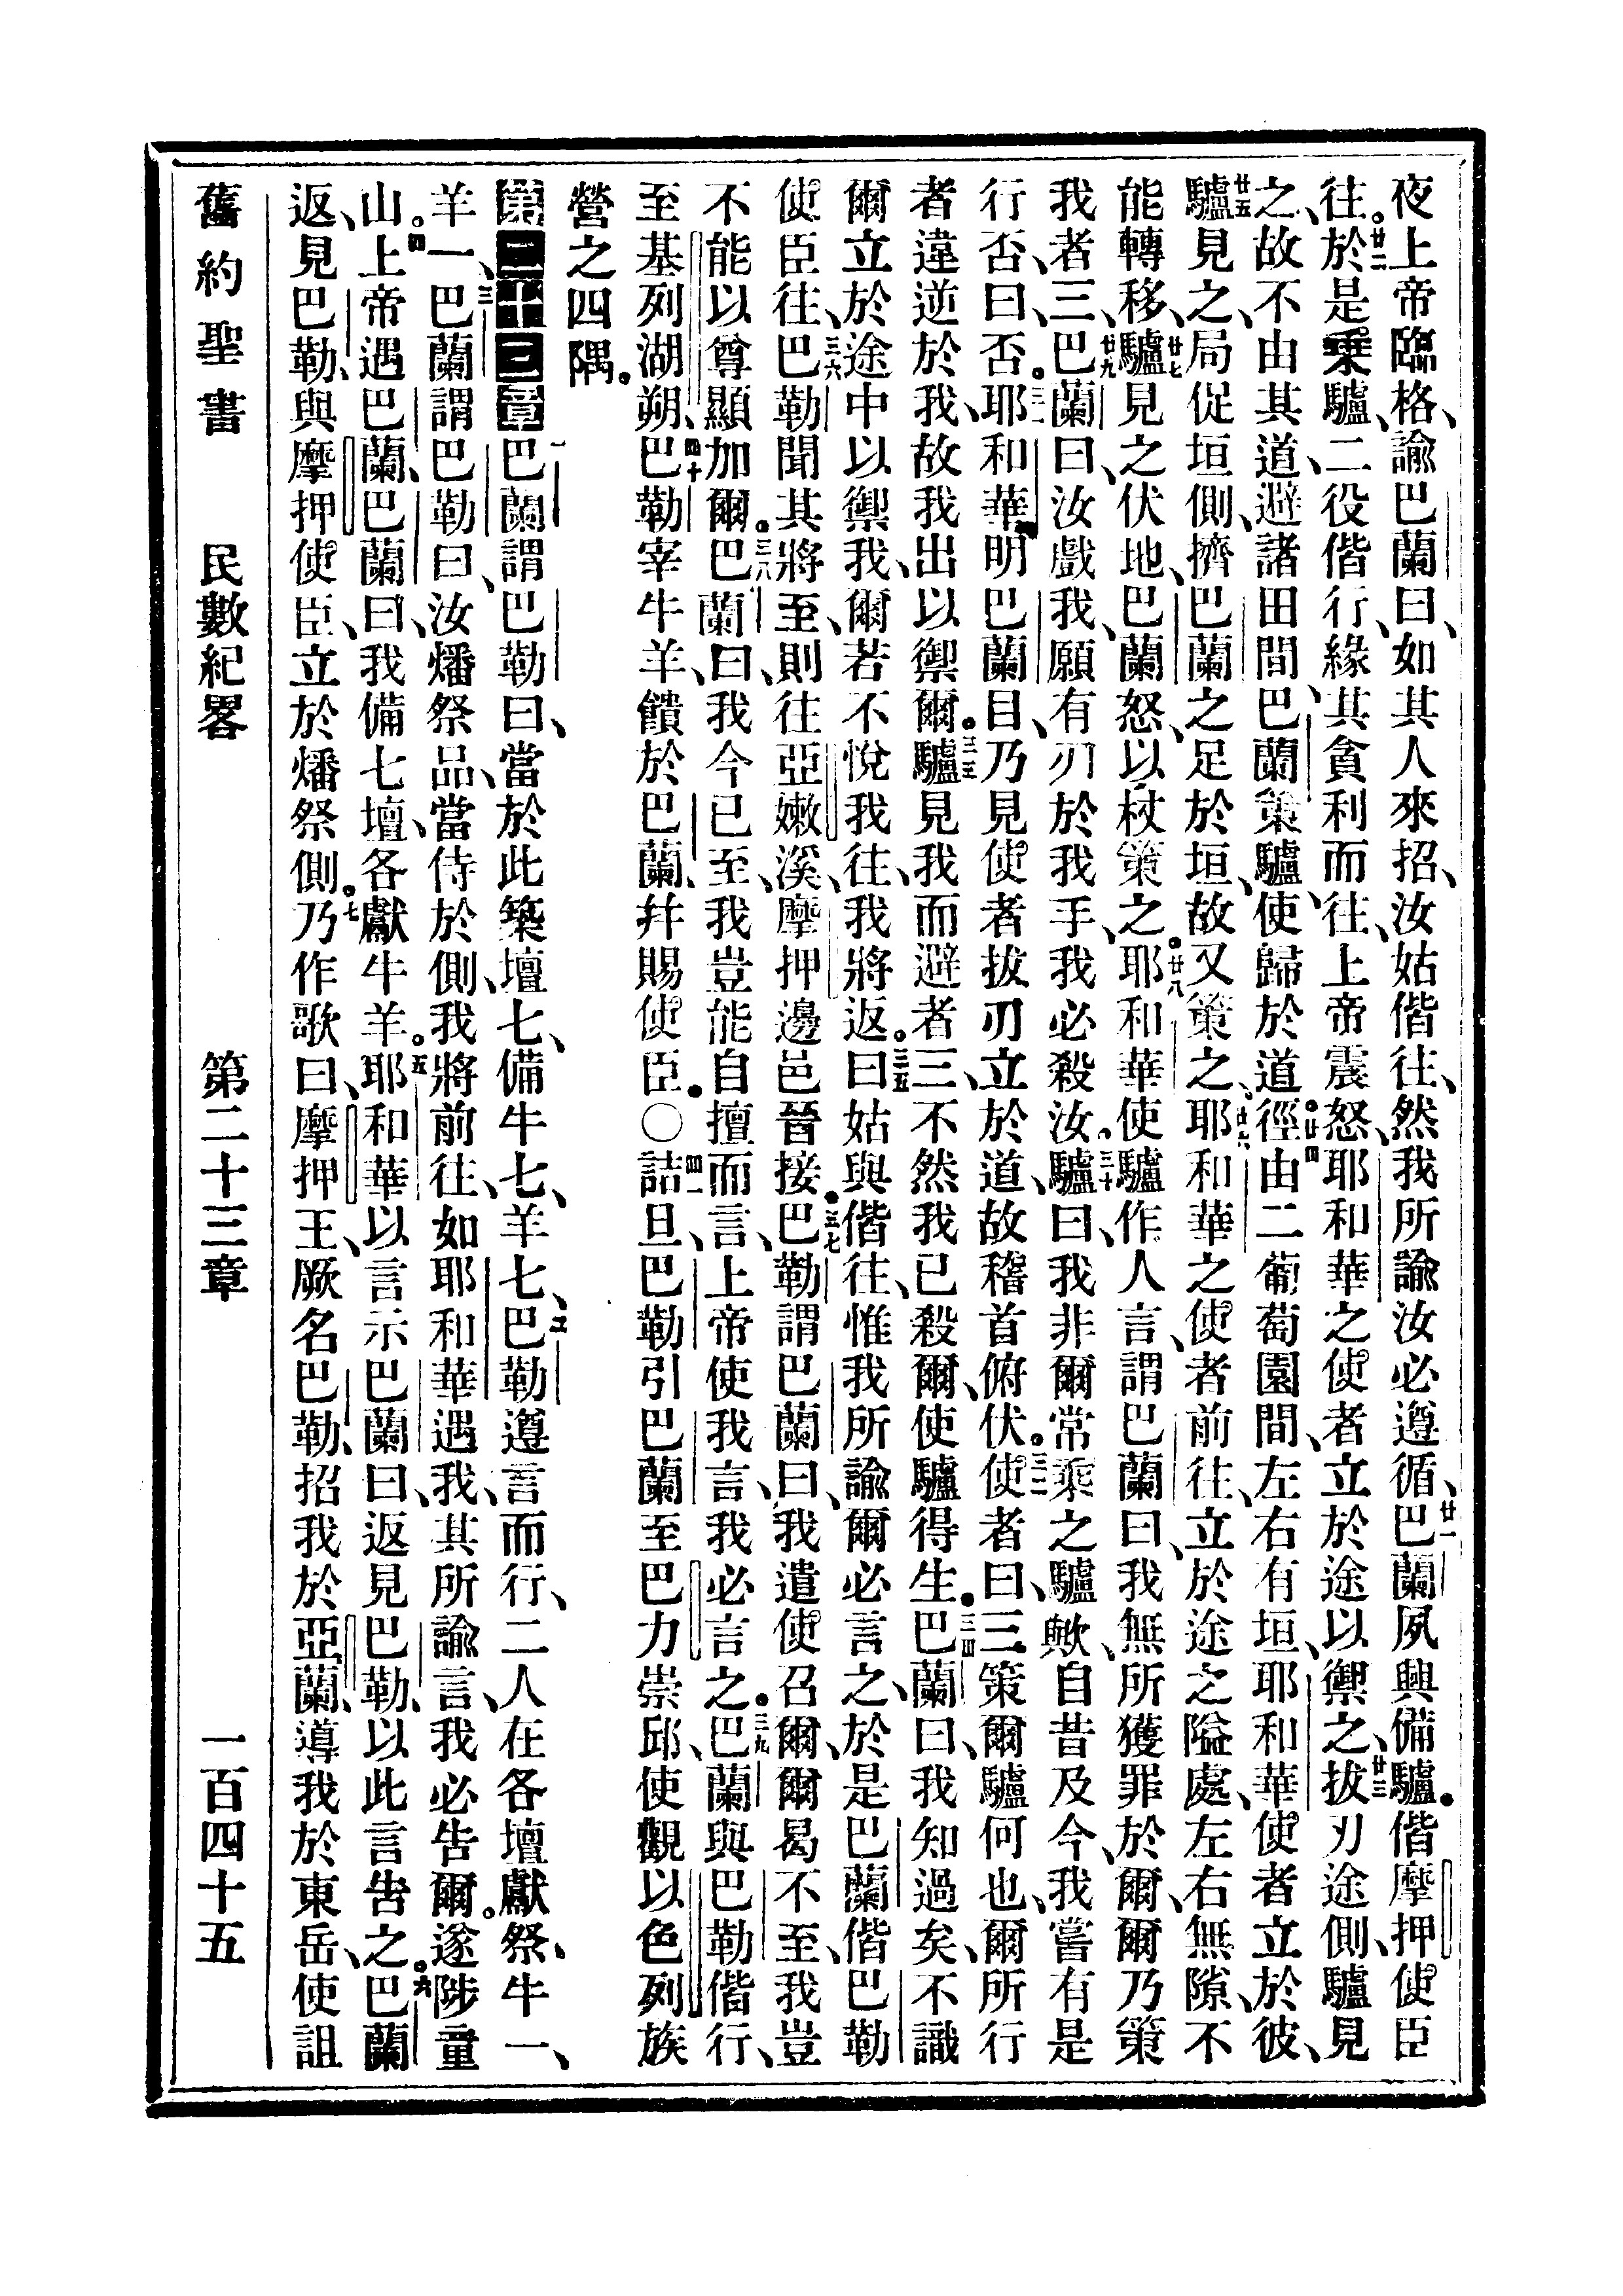 夜上帝臨格、諭巴蘭曰、如其人來招、汝姑偕往、然我所諭汝必遵循、廿一巴蘭夙興備驢。偕摩押使臣
往。廿二於是乘驢、二役偕行、緣其貪利而往、上帝震怒、耶和華之使者立於途以禦之、廿三拔刃途側、驢見
之、故不由其道、避諸田間、巴蘭策驢、使歸於道。廿四徑由二葡萄園間、左右有垣、耶和華使者立於彼、
廿五驢見之、局促垣側、擠巴蘭之足於垣、故又策之、廿六耶和華之使者前往、立於途之隘處、左右無隙、不
能轉移、廿七驢見之伏地、巴蘭怒、以杖策之。廿八耶和華使驢作人言、謂巴蘭曰、我無所獲罪於爾、爾乃策
我者三、廿九巴蘭曰、汝戲我、願有刃於我手、我必殺汝。三十驢曰、我非爾常乘之驢歟、自昔及今、我嘗有是
行否、曰、否。三一耶和華明巴蘭目、乃見使者拔刃立於道、故稽首俯伏。三二使者曰、三策爾驢何也、爾所行
者違逆於我、故我出以禦爾。三三驢見我而避者三、不然我已殺爾、使驢得生。三四巴蘭曰、我知過矣、不識
爾立於途中以禦我、爾若不悅我往、我將返。三五曰姑與偕往、惟我所諭爾必言之、於是巴蘭偕巴勒
使臣往、三六巴勒聞其將至、則往亞嫩溪、摩押邊邑晉接。三七巴勒謂巴蘭曰、我遣使召爾、爾曷不至、我豈
不能以尊顯加爾。三八巴蘭曰、我今已至、我豈能自擅而言、上帝使我言、我必言之。三九巴蘭與巴勒偕行、
至基列湖朔、四十巴勒宰牛羊、饋於巴蘭、幷賜使臣。〇四一詰旦、巴勒引巴蘭至巴力崇邱、使觀以色列族
營之四隅。
第二十三章 一巴蘭謂巴勒曰、當於此築壇七、備牛七、羊七、二巴勒遵言而行、二人在各壇獻祭、牛一、
羊一、三巴蘭謂巴勒曰、汝燔祭品、當侍於側、我將前往、如耶和華遇我、其所諭言、我必告爾。遂陟童
山。四上帝遇巴蘭、巴蘭曰、我備七壇、各獻牛羊。五耶和華以言示巴蘭曰、返見巴勒、以此言告之。六巴蘭
返、見巴勒、與摩押使臣、立於燔祭側。七乃作歌曰、摩押王、厥名巴勒、招我於亞蘭、導我於東岳、使詛
舊約聖書 民數紀畧 第二十三章 一百四十五